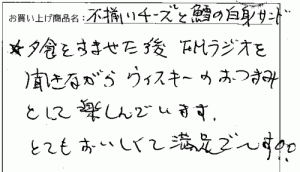 お買い上げ商品名：不揃いチーズと鱈の白身サンド
★夕食をすませた後 FMラジオを
聞きながら ウィスキーのおつまみ
として楽しんでいます。
とてもおいしくて満足で〜す!!